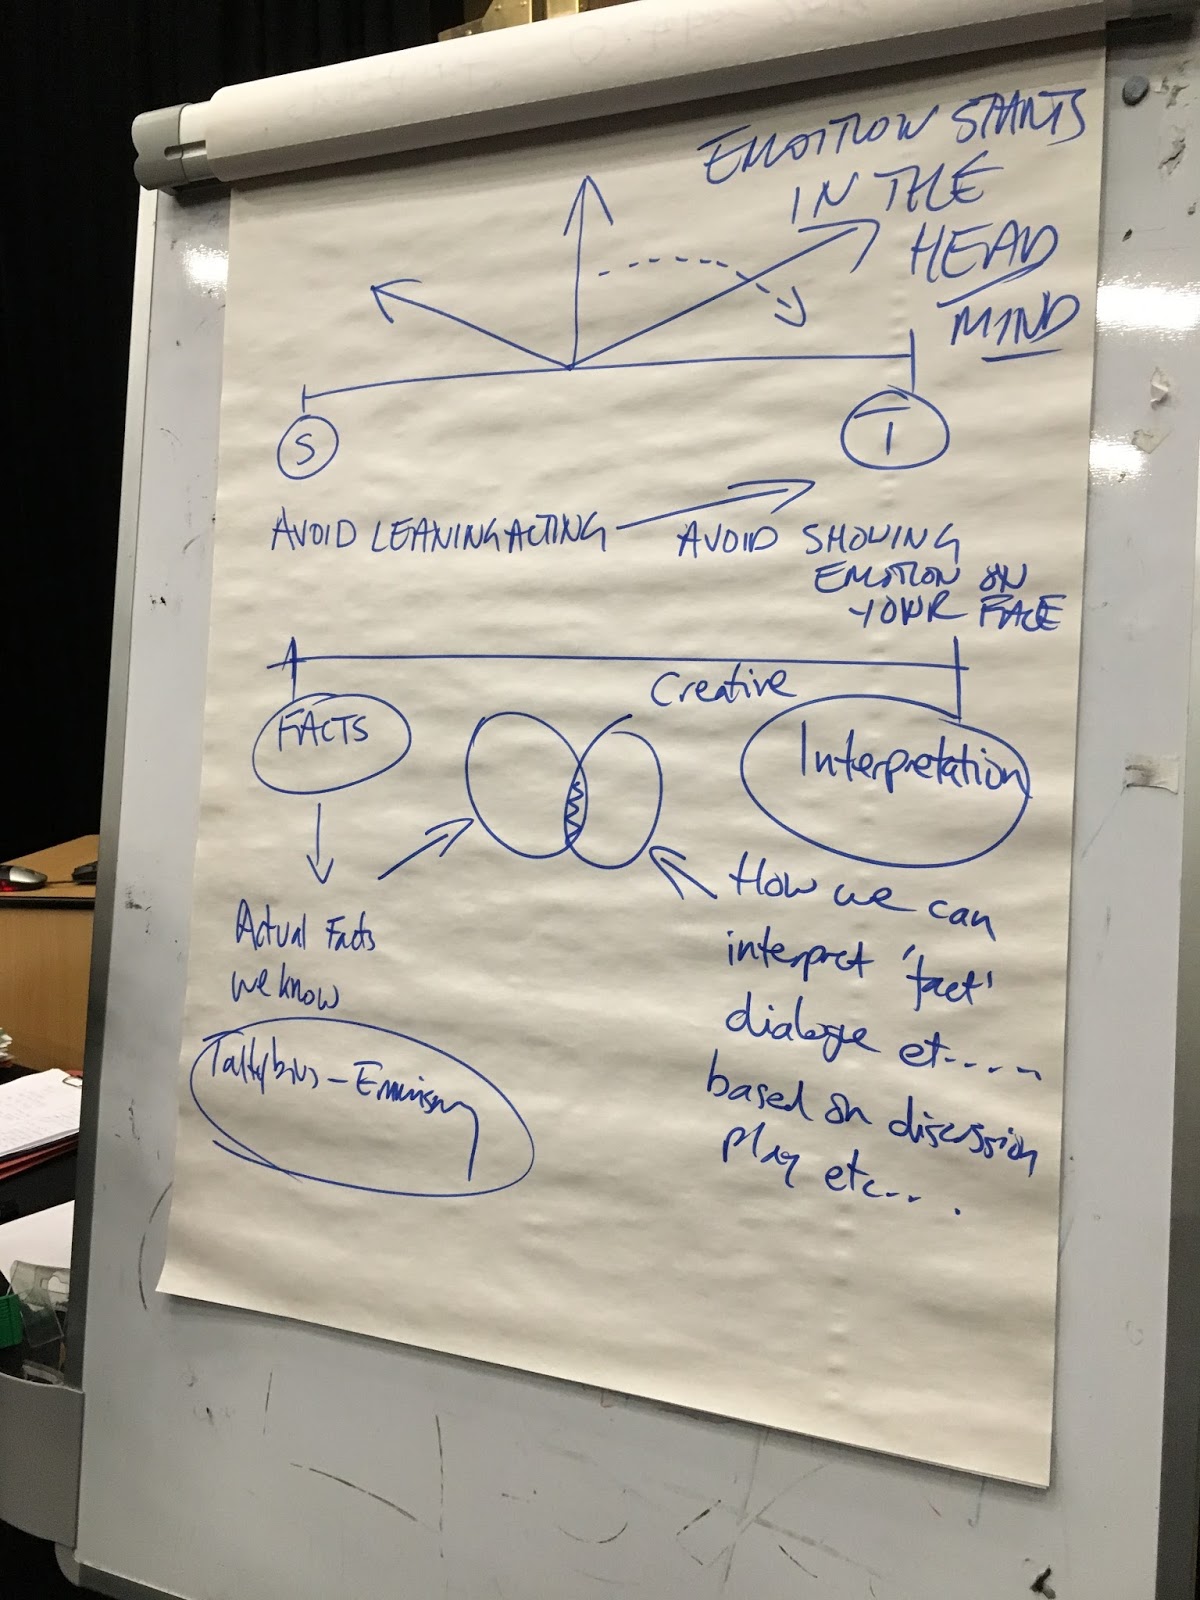 EMOTION STARTS
IN THE
HEAD
MIND
S
T
AVOID LEANING ACTING
AVOID SHOWING
EMOTION ON
YOUR FACE
Creative
FACTS
Interpretation
Actual Facts
we know
How we can
interpret 'fact'
dialogue et.....
based on discussion
play etc... .
Talthybius -